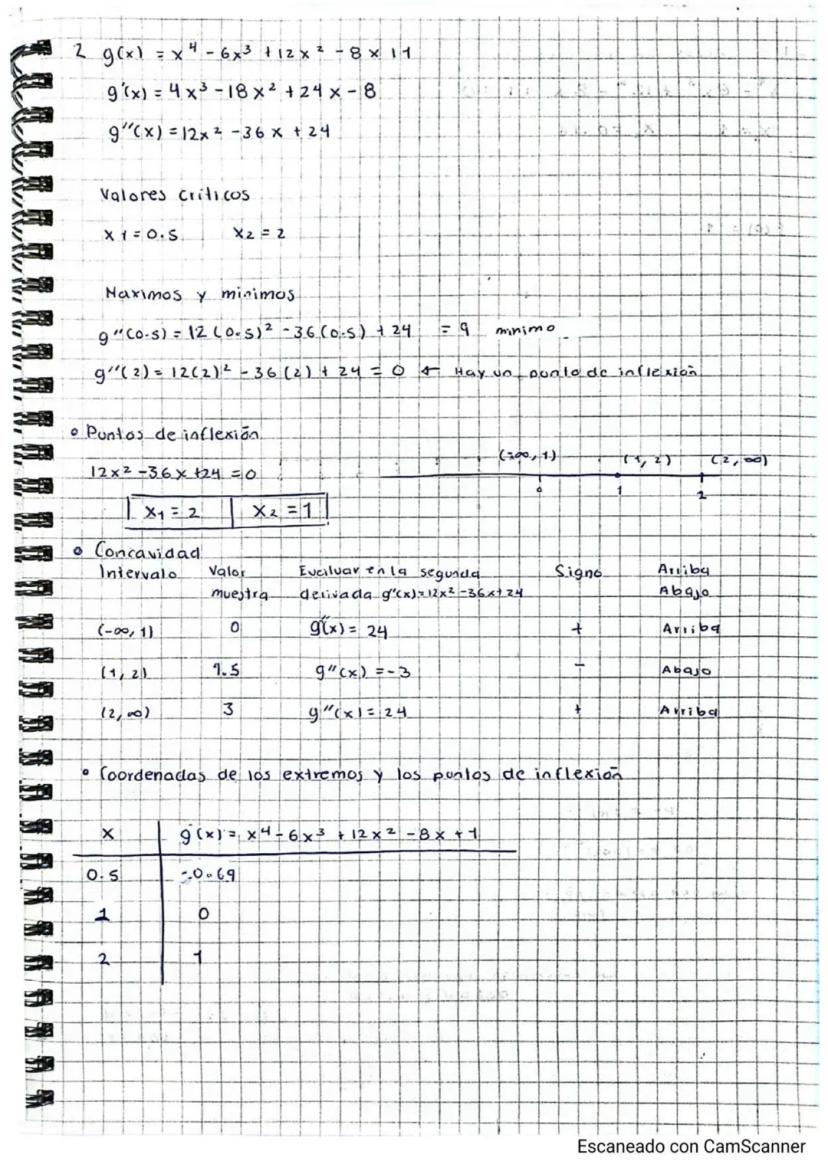 2 g(x) = x⁴ - 6x³ + 12x² - 8x + 1
g'(x) = 4x³ - 18x² + 24x - 8
g''(x) = 12x² - 36x + 24
Valores criticos
x1 = 0.5 x2 = 2
Maximos y minimos
g''(0.5) = 12(0.5)² - 36(0.5) + 24 = 9 minimo
g''(2) = 12(2)² - 36(2) + 24 = 0 ← Hay un punto de inflexión
• Puntos de inflexión
12x² - 36x + 24 = 0
x₁ = 2 x₂ = 1
(-∞, 1) (1, 2) (2, ∞)
0 1 2
• Concavidad
Intervalo Valor muestra Evaluar en la segunda derivada g''(x) = 12x² - 36x + 24 Signo Arriba Abajo
(-∞, 1) 0 g''(x) = 24 + Arriba
(1, 2) 1.5 g''(x) = -3 - Abajo
(2, ∞) 3 g''(x) = 24 + Arriba
• Coordenadas de los extremos y los puntos de inflexión
x g(x) = x⁴ - 6x³ + 12x² - 8x + 1
0.5 -0.69
1 0
2 1
Escaneado con CamScanner